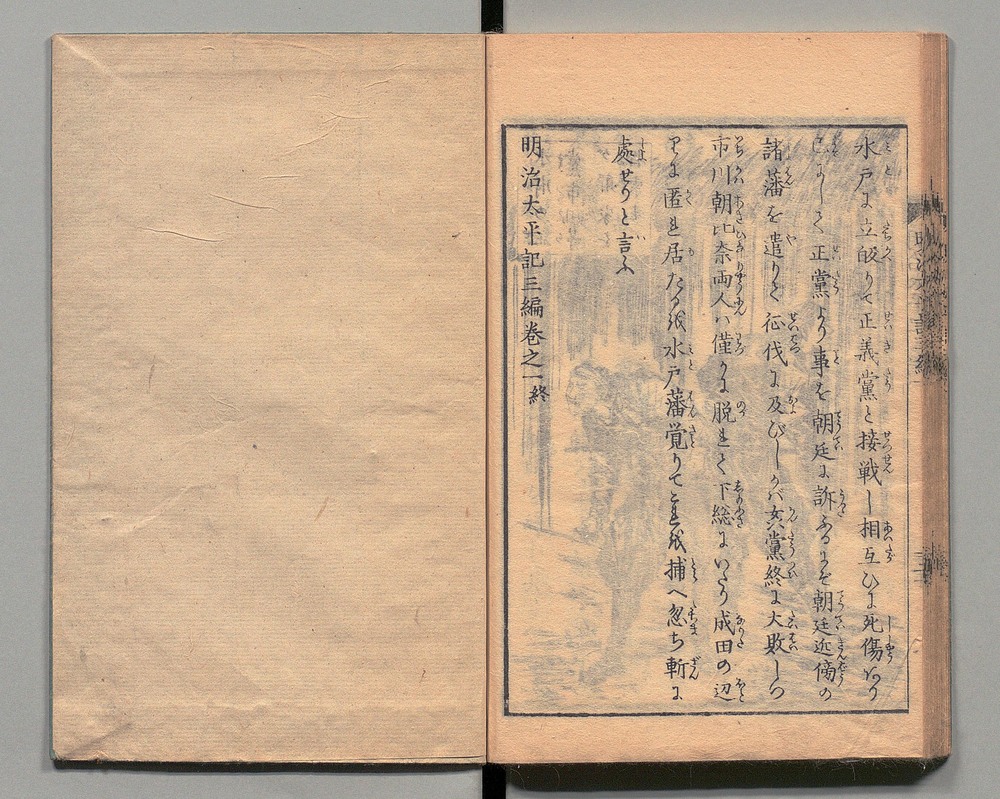 水戸に立皈りて正義黨と接戦し相互ひに死傷あり
已にして正黨より事を朝廷に訴ふるにぞ朝廷近傍の
諸藩を遣りて征伐に及びしかバ奸黨終に大敗しつ
市川朝比奈両人ハ僅かに脱れて下総にいたり成田の辺
りに匿れ居たるを水戸藩覚りてこれを捕へ忽ち斬に
處せりと言ふ
明治太平記三編巻之一終